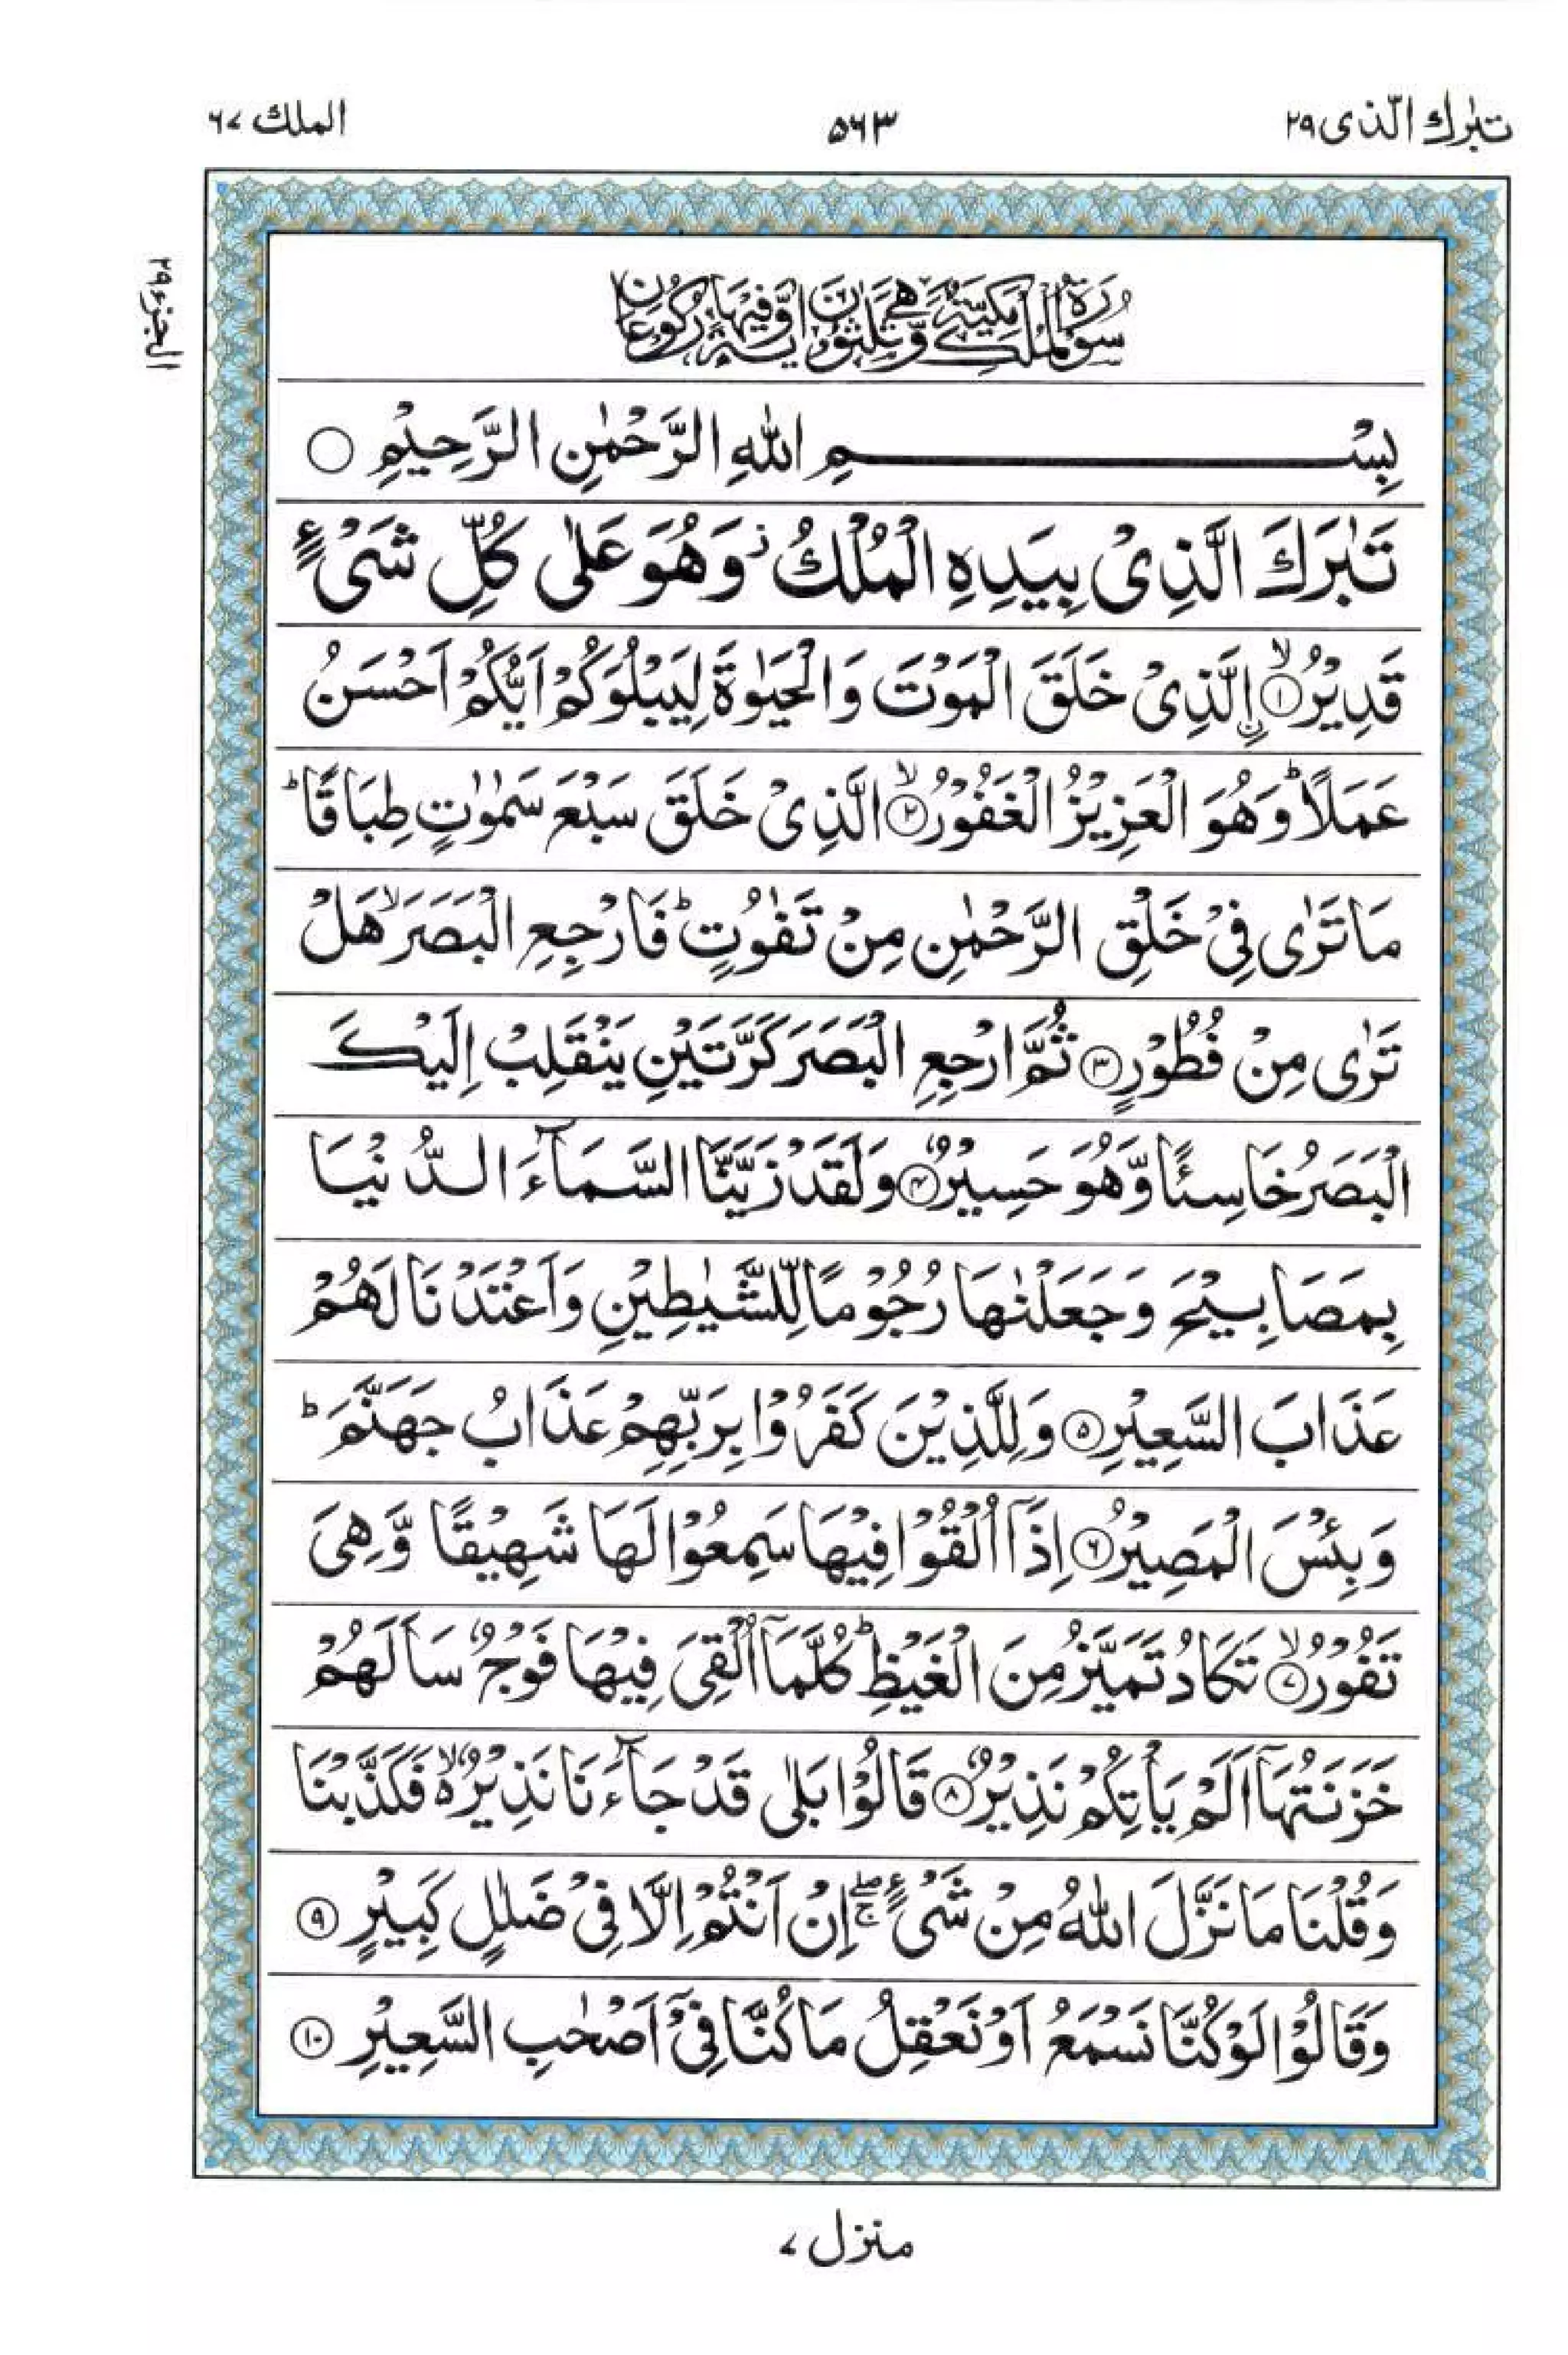 تبٰرك الّذی ۲۹
۵۶۳
الملك ۶۷
الجزء ۲۹
سُوْرَةُ الْمُلْكِ مَكِّيَّةٌ وَّهِیَ ثَلٰثُوْنَ اٰيَةً وَّفِيْهَا رُكُوْعَانِ
بِسْمِ اللّٰهِ الرَّحْمٰنِ الرَّحِيْمِ ○
تَبٰرَكَ الَّذِیْ بِيَدِهِ الْمُلْكُ ز وَهُوَ عَلٰی كُلِّ شَیْءٍ
قَدِيْرُ ۙ﴿۱﴾ اۨلَّذِیْ خَلَقَ الْمَوْتَ وَالْحَيٰوةَ لِيَبْلُوَكُمْ اَيُّكُمْ اَحْسَنُ
عَمَلًا ؕ وَهُوَ الْعَزِيْزُ الْغَفُوْرُ ۙ﴿۲﴾ الَّذِیْ خَلَقَ سَبْعَ سَمٰوٰتٍ طِبَاقًا ؕ
مَا تَرٰی فِیْ خَلْقِ الرَّحْمٰنِ مِنْ تَفٰوُتٍ ؕ فَارْجِعِ الْبَصَرَ ۙ هَلْ
تَرٰی مِنْ فُطُوْرٍ ﴿۳﴾ ثُمَّ ارْجِعِ الْبَصَرَ كَرَّتَيْنِ يَنْقَلِبْ اِلَيْكَ
الْبَصَرُ خَاسِئًا وَّهُوَ حَسِيْرٌ ﴿۴﴾ وَلَقَدْ زَيَّنَّا السَّمَآءَ الدُّنْيَا
بِمَصَابِيْحَ وَجَعَلْنٰهَا رُجُوْمًا لِّلشَّيٰطِيْنِ وَاَعْتَدْنَا لَهُمْ
عَذَابَ السَّعِيْرِ ﴿۵﴾ وَلِلَّذِيْنَ كَفَرُوْا بِرَبِّهِمْ عَذَابُ جَهَنَّمَ ؕ
وَبِئْسَ الْمَصِيْرُ ﴿۶﴾ اِذَآ اُلْقُوْا فِيْهَا سَمِعُوْا لَهَا شَهِيْقًا وَّهِیَ
تَفُوْرُ ۙ﴿۷﴾ تَكَادُ تَمَيَّزُ مِنَ الْغَيْظِ ؕ كُلَّمَآ اُلْقِیَ فِيْهَا فَوْجٌ سَاَلَهُمْ
خَزَنَتُهَآ اَلَمْ يَاْتِكُمْ نَذِيْرٌ ﴿۸﴾ قَالُوْا بَلٰی قَدْ جَآءَنَا نَذِيْرٌ ۙ۬ فَكَذَّبْنَا
وَقُلْنَا مَا نَزَّلَ اللّٰهُ مِنْ شَیْءٍ ۖۚ اِنْ اَنْتُمْ اِلَّا فِیْ ضَلٰلٍ كَبِيْرٍ ﴿۹﴾
وَقَالُوْا لَوْ كُنَّا نَسْمَعُ اَوْ نَعْقِلُ مَا كُنَّا فِیْٓ اَصْحٰبِ السَّعِيْرِ ﴿۱۰﴾
منزل ۷